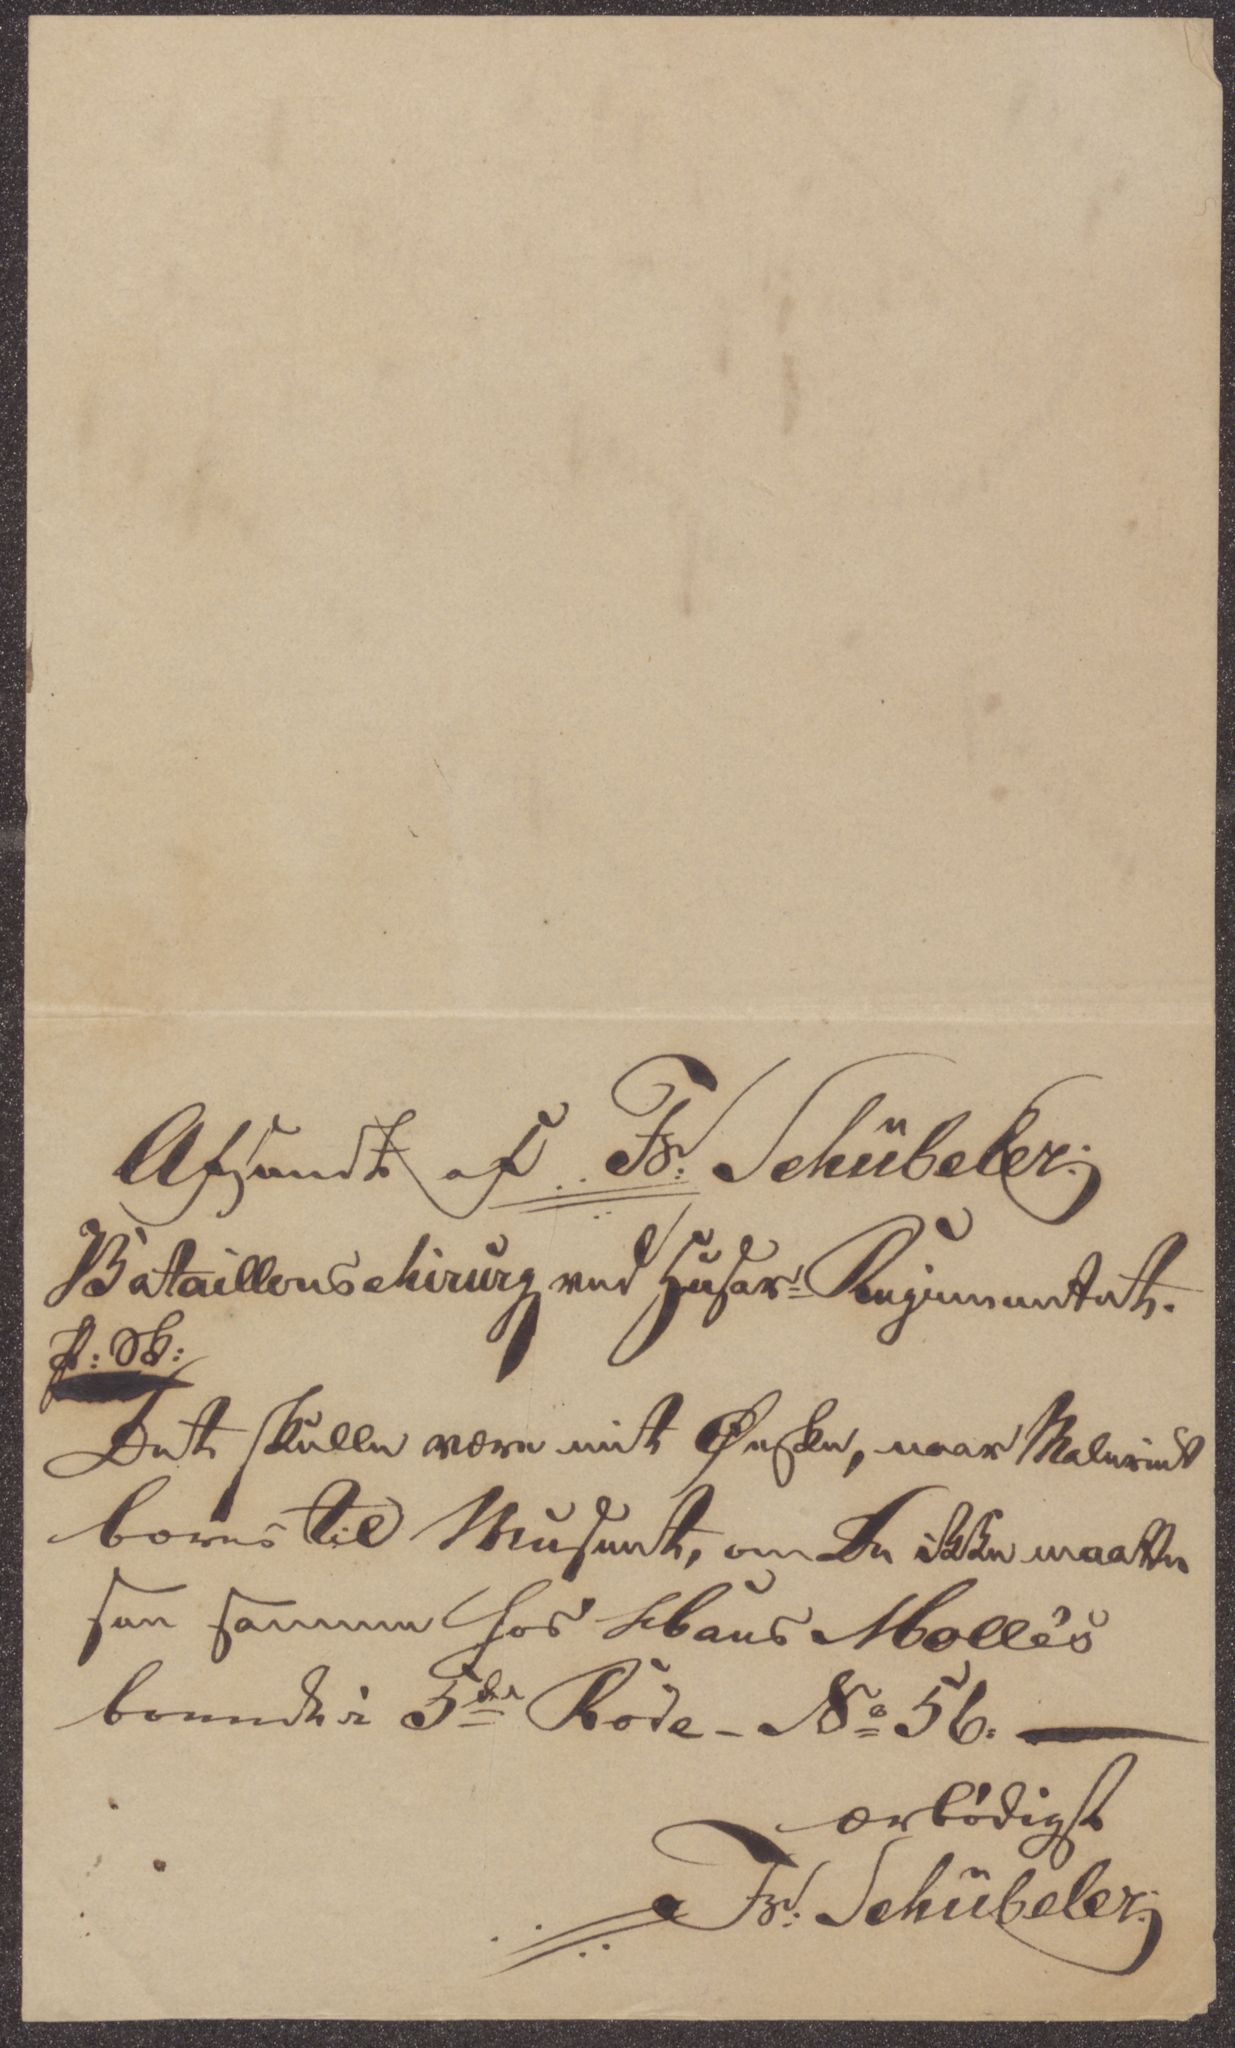 Afsendt af Fr: Schübeler;
Bataillonschirurg ved Husar-Regimentet.
P: S:
Det skulle være mit Ønske, naar Maleriet
bæres til Museet, om De ikke maatte
see samme hos Hans Molles
boende i 5te Rode - No 56.
ærbödigst
Fr: Schübeler;